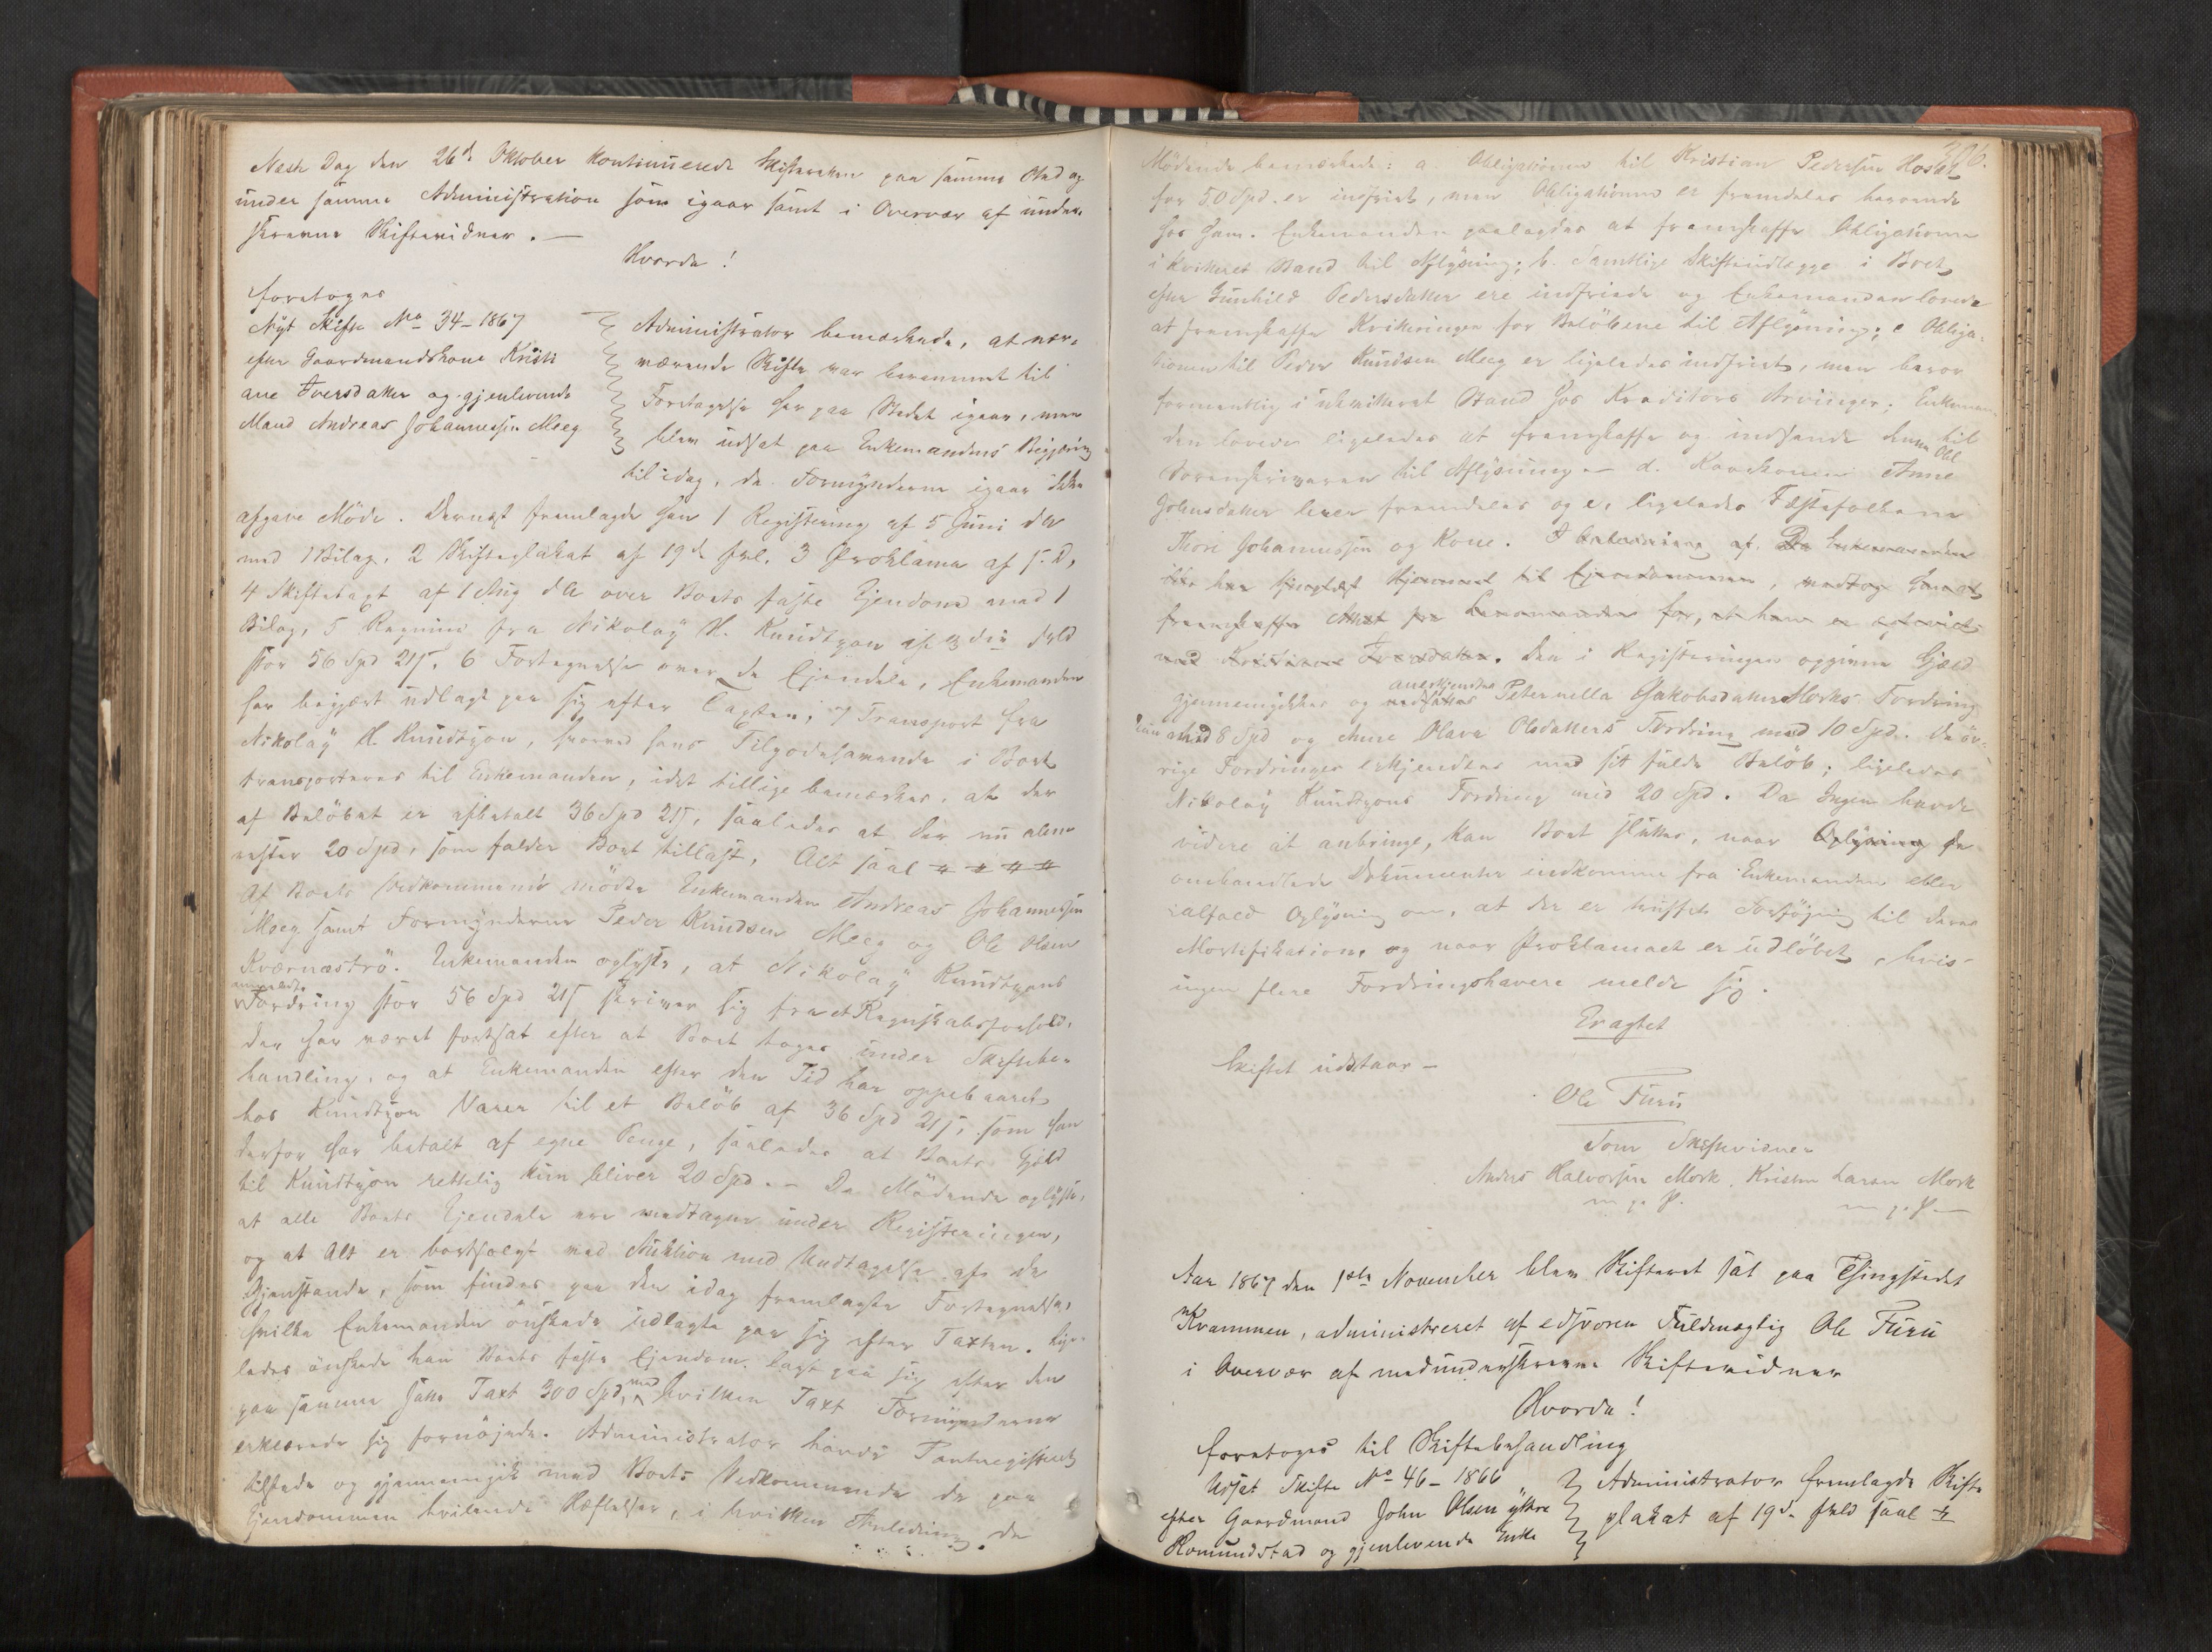 Næste Dag den 26de Oktober kontinuerede Skifteretten paa samme Sted og
under samme Administration som igaar samt i Overvær af under-
skrevne Skiftevidner. —
Hvorda!
foretoges
Nyt Skifte No 34-1867
efter Gaardmandskone Kristi
ane Iversdatter og gjenlevende
Mand Andreas Johannessen Meeg
Administrator bemærkede, at nær-
værende Skifte var berammet til
Foretagelse her paa Stedet igaar, men
blev udsat paa Enkemandens Begjæring
til idag, da Formynderne igaar ikke
afgave Møde. Dernæst fremlagde han 1 Registrering af 5 Juni d A
med 1 Bilag, 2 Skifteplakat af 19de f.M. 3 Proklama af s. D,
4 Skiftetaxt af 1 Aug d A over Boets faste Eiendom med 1
Bilag, 5 Regning fra Nikolay H. Knudtzon
stor 56 Spd 21 s, 6 Fortegnelse over de Eiendele, Enkemanden
har begjært udlagt paa sig efter Taxten; 7 Transport fra
Nikolay H. Knudtzon, hvorved hans Tilgodehavende i Boet
transporteres til Enkemanden, idet tillige bemærkes, at der
af Beløbet er afbetalt 36 Spd 21 s, saaledes at der nu alene
rester 20 Spd, som falder Boet tillast, Alt saal # # # #
Af Boets Vedkommende mødte Enkemanden Andreas Johannessen
Meeg samt Formynderne Peder Knudsen Meeg og Ole Olsen
Kværnæstrø. Enkemanden oplyste, at Nikolay Knudtzons
anmeldte
Fordring stor 56 Spd 21 s skriver sig fra et Regnskabsforhold,
der har været fortsat efter at Boet toges under Skiftebe-
handling, og at Enkemanden efter den Tid har oppebaaret
hos Knudtzon Varer til et Beløb af 36 Spd 21 s, som han
derfor har betalt af egne Penge, saaledes at Boets Gjæld
til Knudtzon rettelig kun bliver 20 Spd. — De Mødende oplyste,
at alle Boets Eiendele ere medtagne under Registreringen,
og at Alt er bortsolgt ved Auktion med Undtagelse af de
Gjenstande, som findes paa den idag fremlagte Fortegnelse,
hvilke Enkemanden ønskede udlagte paa sig efter Taxten. Lige-
ledes ønskede han Boets faste Eiendom lagt paa sig efter den
paa samme satte Taxt 300 Spd, med hvilken Taxt Formynderne
erklærede sig fornøjede. Administrator havde Panteregistret
tilstede og gjennemgik med Boets Vedkommende de paa
Eiendommen hvilende Hæftelser, i hvilken Anledning de
306.
Mødende bemærkede: a Obligationen til Kristian Pedersen Hoset
for 50 Spd. er indfriet, men Obligationen er fremdeles beroende
hos ham. Enkemanden paalagdes at fremskaffe Obligationen
i kvitteret Stand til Aflysning; b. Samtlige Skifteudlægge i Boet
efter Gunhild Pedersdatter ere indfriede og Enkemanden lovede
at fremskaffe Kvitteringer for Beløbene til Aflysning; c Obliga-
tionen til Peder Knudsen Meeg er ligeledes indfriet, men beror
formentlig i ukvitteret Stand hos Kreditors Arvinger; Enkeman-
den lovede ligeledes at fremskaffe og indsende denne Obl til
Sorenskriveren til Aflysning — d. Kaarkonen Anne
Johnsdatter lever fremdeles og e, ligeledes Fæstefolkene
Thore Johannessen og Kone. I af Da Enkemanden
ikke har tinglæst Hjemmel til Eiendommen, vedtog han at
fremskaffe Attest fra Lensmanden for, at han er
med Kristiane Iversdatter. Den i Registreringen opgivne Gjæld
anerkjendtes
gjennemgikkes og vedtoges Peternella Jakobsdatter Morks Fordring
kun med 8 Spd og Anne Olava Olsdatters Fordring med 10 Spd. De øv-
rige Fordringer erkjendtes med sit fulde Beløb; ligeledes
Nikolay Knudtzons Fordring med 20 Spd. Da Ingen havde
videre at anbringe, kan Boet sluttes, naar Oplysning de
omhandlede Dokumenter indkomme fra Enkemanden eller
ialfald Oplysning om, at der er truffet Forføjning til deres
Mortifikation, og naar Proklamaet er udløbet, hvis
ingen flere Fordringshavere melde sig.
Eragtet
Skiftet udstaar —
Ole Furu
Som Skiftevidner
Anders Halvorsen Mork. Kristen Larsen Mork
m. p. P. m. p. P.
Aar 1867 den 1ste November blev Skifteret sat paa Thingstedet
Kvammen, administreret af edsvoren Fuldmægtig Ole Furu
i Overvær af medunderskrevne Skiftevidner
Hvorda!
foretoges til Skiftebehandling
Udsat Skifte No 46-1866
efter Gaardmand John Olsen yttre
Romundstad og gjenlevende Enke
Administrator fremlagde Skifte
plakat af 19de f.M. saal #